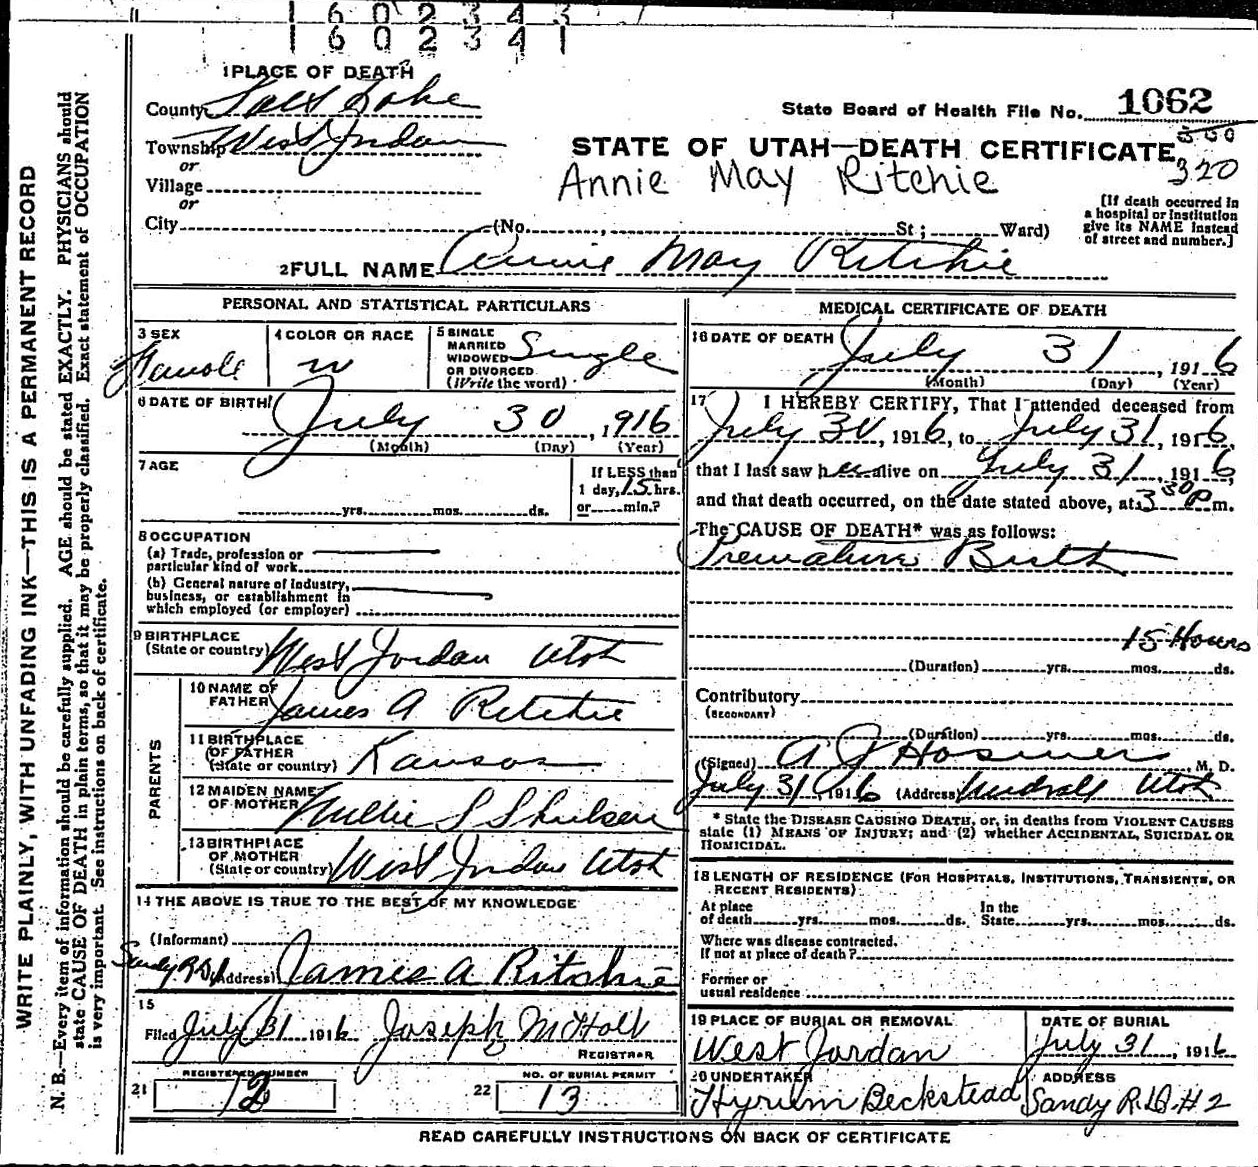 1 6 0 2 3 4 3
1 6 0 2 3 4 1
WRITE PLAINLY, WITH UNFADING INK—THIS IS A PERMANENT RECORD
N. B.—Every item of information should be carefully supplied. AGE should be stated EXACTLY. PHYSICIANS should
state CAUSE OF DEATH in plain terms, so that it may be properly classified. Exact statement of OCCUPATION
is very important. See instructions on back of certificate.
1 PLACE OF DEATH
County Salt Lake
State Board of Health File No. 1062
Township West Jordan
STATE OF UTAH—DEATH CERTIFICATE
320
or
Village
Annie May Ritchie
or
City (No. , St ; Ward)
[If death occurred in
a hospital or institution
give its NAME instead
of street and number.]
2 FULL NAME Annie May Ritchie
PERSONAL AND STATISTICAL PARTICULARS
3 SEX Female
4 COLOR OR RACE W
5 SINGLE
MARRIED
WIDOWED
OR DIVORCED
(Write the word) Single
6 DATE OF BIRTH July 30, 1916
(Month) (Day) (Year)
7 AGE
yrs. mos. ds.
If LESS than
1 day, 15 hrs.
or min.?
8 OCCUPATION
(a) Trade, profession or
particular kind of work
(b) General nature of Industry,
business, or establishment in
which employed (or employer)
9 BIRTHPLACE
(State or country) West Jordan Utah
PARENTS
10 NAME OF
FATHER James A Ritchie
11 BIRTHPLACE
OF FATHER
(State or country) Kansas
12 MAIDEN NAME
OF MOTHER Nellie S
13 BIRTHPLACE
OF MOTHER
(State or country) West Jordan Utah
14 THE ABOVE IS TRUE TO THE BEST OF MY KNOWLEDGE
(Informant)
Sandy (Address) James A Ritchie
15
Filed July 31 1916 Joseph M Holt
REGISTRAR
21 REGISTERED NUMBER 12
22 NO. OF BURIAL PERMIT 13
MEDICAL CERTIFICATE OF DEATH
16 DATE OF DEATH July 31, 1916
(Month) (Day) (Year)
17 I HEREBY CERTIFY, That I attended deceased from
July 30, 1916, to July 31, 1916,
that I last saw her alive on July 31, 1916,
and that death occurred, on the date stated above, at 3 30 P m.
The CAUSE OF DEATH* was as follows:
Premature Birth
15 Hours
(Duration) yrs. mos. ds.
Contributory
(SECONDARY)
(Duration) yrs. mos. ds.
(Signed) A J Hosmer, M. D.
July 31, 1916 (Address) Midvale Utah
* State the DISEASE CAUSING DEATH, or, in deaths from VIOLENT CAUSES
state (1) MEANS OF INJURY; and (2) whether ACCIDENTAL, SUICIDAL OR
HOMICIDAL.
18 LENGTH OF RESIDENCE (FOR HOSPITALS, INSTITUTIONS, TRANSIENTS, OR
RECENT RESIDENTS)
At place In the
of death yrs. mos. ds. State yrs. mos. ds.
Where was disease contracted.
If not at place of death ?
Former or
usual residence
19 PLACE OF BURIAL OR REMOVAL DATE OF BURIAL
West Jordan July 31, 1916
20 UNDERTAKER ADDRESS
Hyrum Beckstead Sandy R.D.#2
READ CAREFULLY INSTRUCTIONS ON BACK OF CERTIFICATE